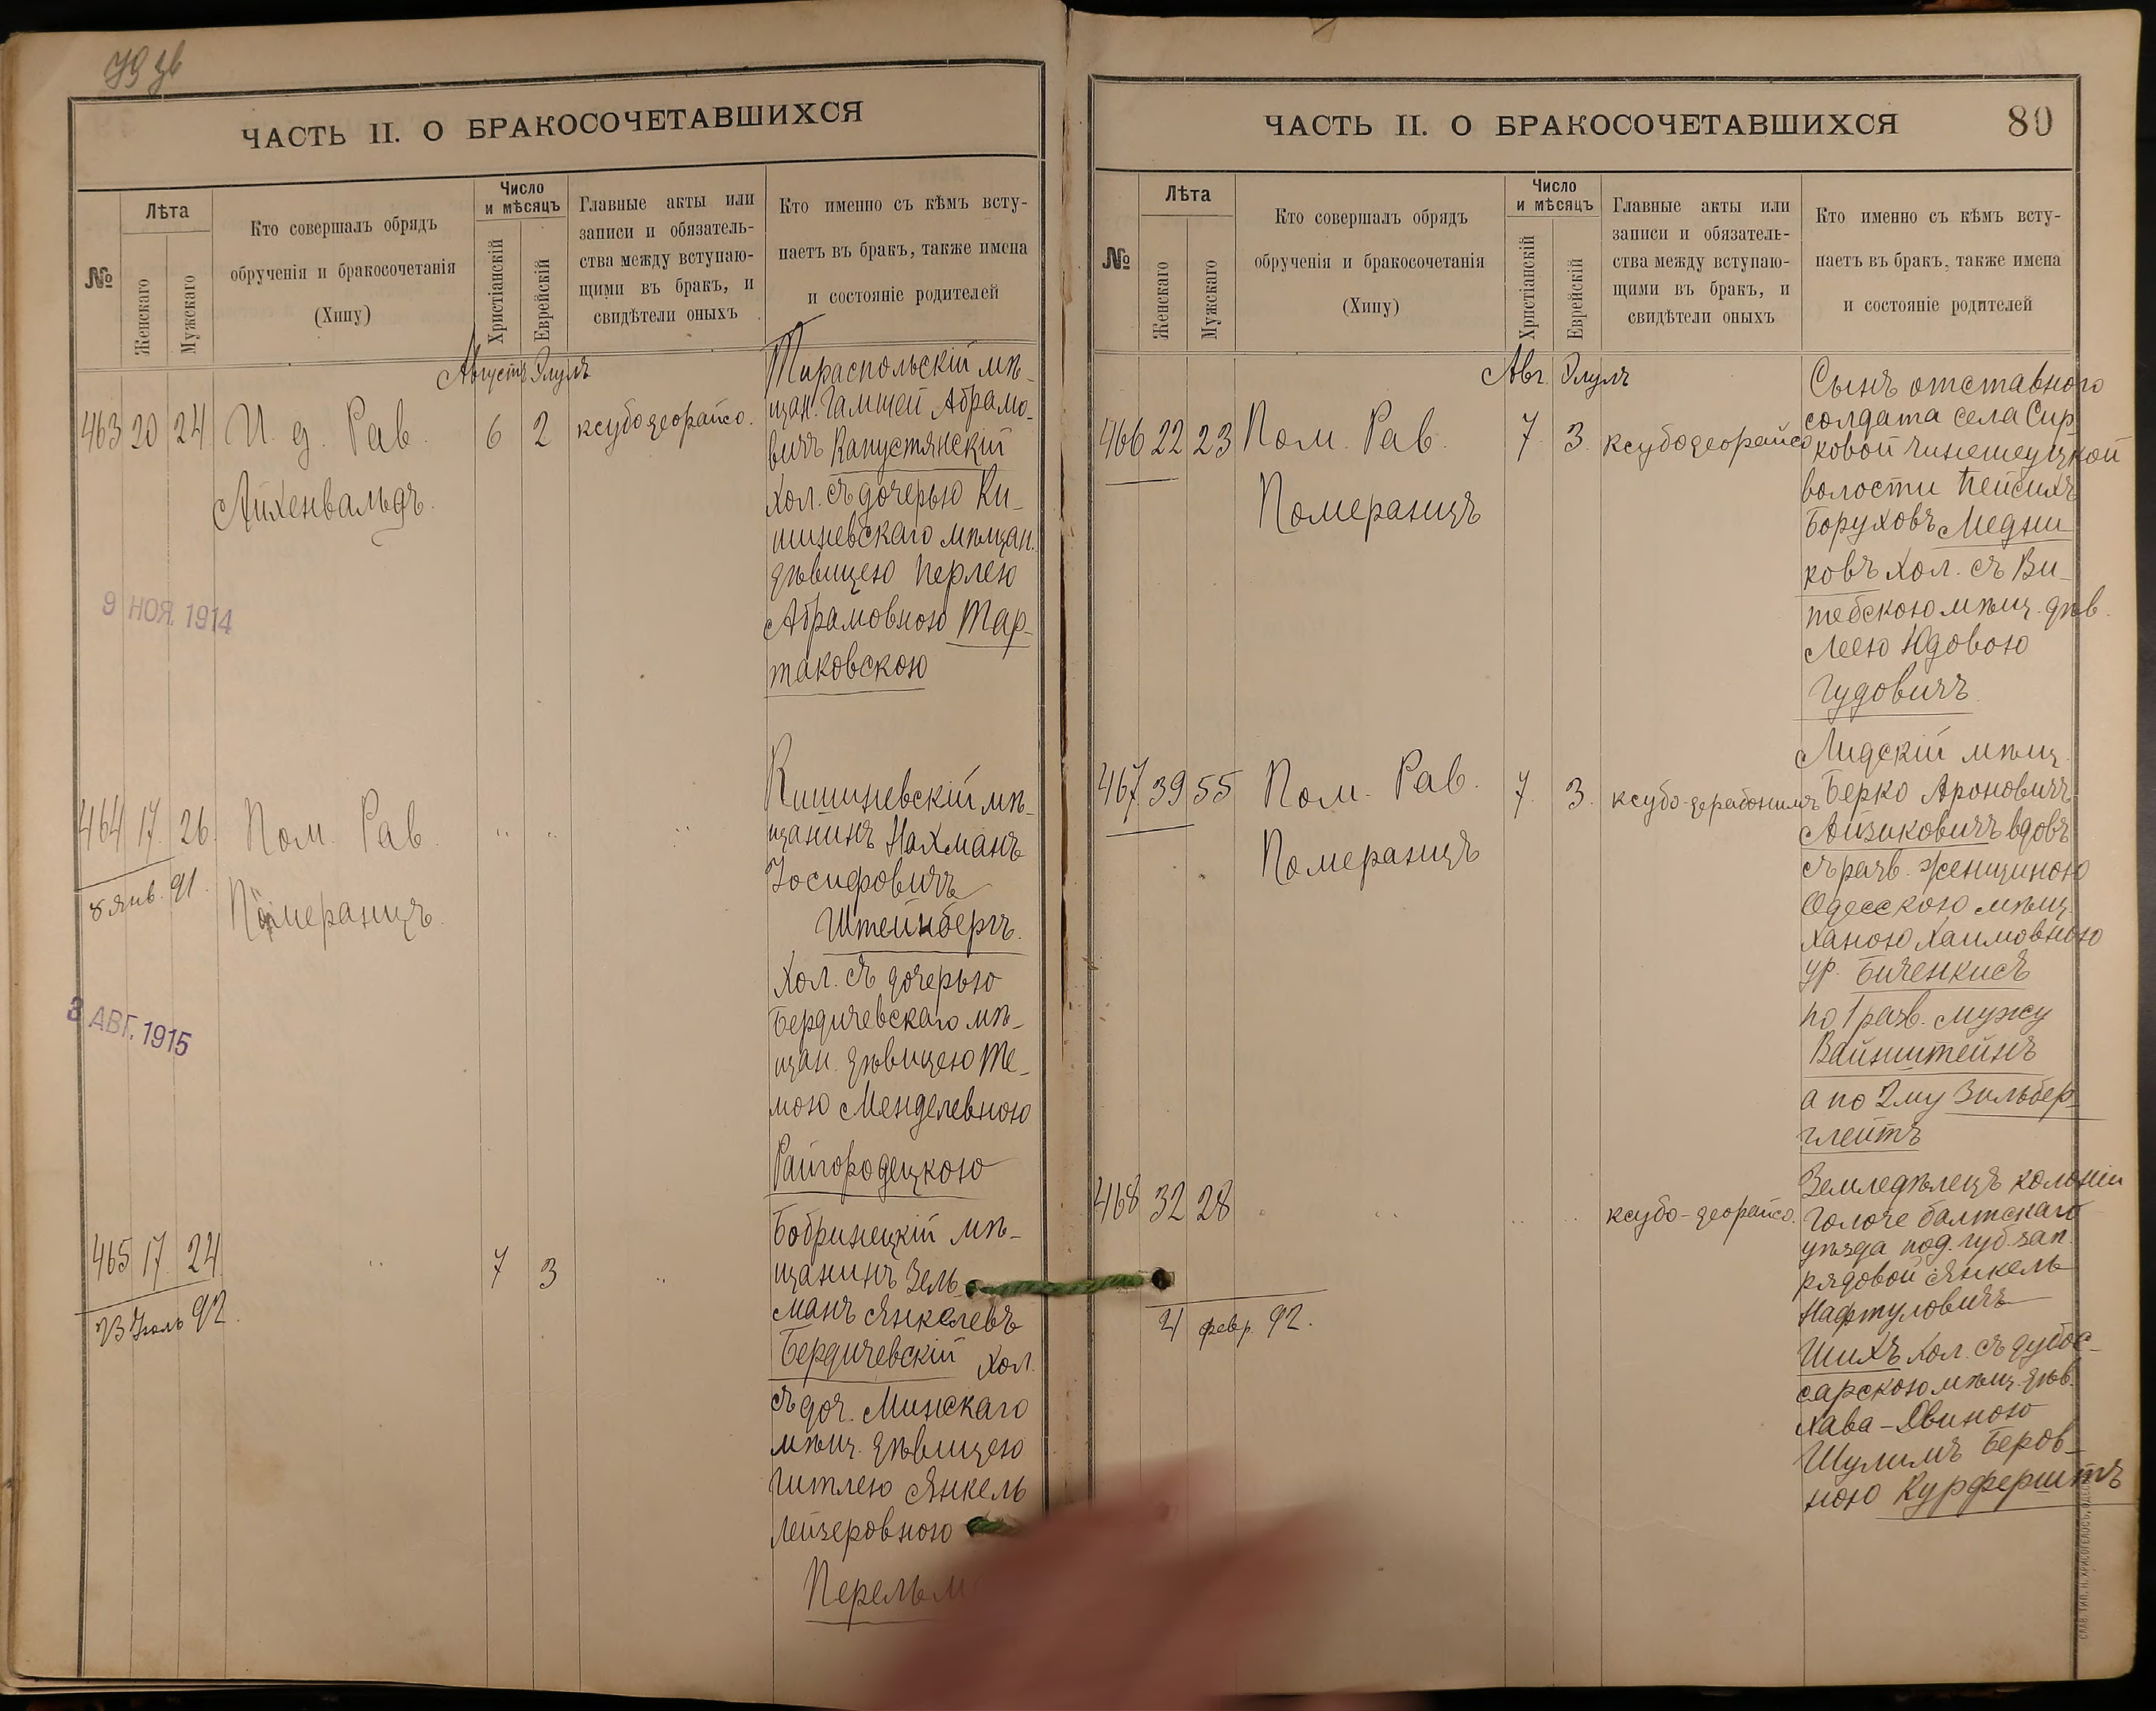 79 зв
ЧАСТЬ II. О БРАКОСОЧЕТАВШИХСЯ
№
Лѣта
Женскаго
Мужскаго
Кто совершалъ обрядъ
обрученія и бракосочетанія
(Хипу)
Число
и мѣсяцъ
Христіанскій
Еврейскій
Главные акты или
записи и обязатель-
ства между вступаю-
щими въ бракъ, и
свидѣтели оныхъ
Кто именно съ кѣмъ всту-
паетъ въ бракъ, также имена
и состояніе родителей
Августъ Элулъ
463 20 24 И. д. Рав.
Айхенвальдъ.
6 2 ксубо деорайсо.
Тираспольскій мѣ-
щан. Гамшей Абрамо-
вичъ Капустянскій
хол. съ дочерью Ки-
шиневскаго мѣщан.
дѣвицею Перлею
Абрамовною Тар-
таковскою
9 НОЯ. 1914
464 17 26. Пом. Рав.
Померанцъ.
" " "
8 янв. 91.
Кишиневскій мѣ-
щанинъ Нахманъ
Іосифовичъ
Штейнбергъ.
хол. съ дочерью
Бердичевскаго мѣ-
щан. дѣвицею Те-
мою Менделевною
Райгородецкою
3 АВГ. 1915
465 17 24. " 7 3 "
23 Іюль 92.
Бобринецкій мѣ-
щанинъ Зель-
манъ Янкелевъ
Бердичевскій хол.
съ доч. Минскаго
мѣщ. дѣвицею
Гитлею Янкель
Лейзеровною
ЧАСТЬ II. О БРАКОСОЧЕТАВШИХСЯ
80
№
Лѣта
Женскаго
Мужскаго
Кто совершалъ обрядъ
обрученія и бракосочетанія
(Хипу)
Число
и мѣсяцъ
Христіанскій
Еврейскій
Главные акты или
записи и обязатель-
ства между вступаю-
щими въ бракъ, и
свидѣтели оныхъ
Кто именно съ кѣмъ всту-
паетъ въ бракъ, также имена
и состояніе родителей
Авг. Элулъ
466 22 23 Пом. Рав.
Померанцъ
7. 3. ксубо деорайсо
Сынъ отставного
солдата села Сир
ковой Чинешеуцкой
волости Пейсихъ
Боруховъ Медни
ковъ хол. съ Ви-
тебскою мѣщ. дѣв.
Леею Юдовою
Гудовичъ.
467. 39 55 Пом. Рав.
Померанцъ
7. 3. ксубо-дерабонимъ
Лидскій мѣщ.
Берко Ароновичъ
Айзиковичъ вдовъ
съ разв. женщиною
Одесскою мѣщ.
Ханою Хаимовною
ур. Биченкисъ
по 1 разв. мужу
Вайнштейнъ
а по 2му Зильбер-
глейтъ
468 32 28 " " " " ксубо-деорайсо.
4 февр. 92.
Земледѣлецъ колоніи
Голоче балтскаго
уѣзда под. губ. зап.
рядовой Янкель
Нафтуловичъ
Шихъ хол. съ дубос-
сарскою мѣщ. дѣв.
Хава-Двиною
Шулимъ Беров-
ною Курферштъ
СЛАВ. ТИП. Н. ХРИСОГЕЛОСЪ, ОДЕССА